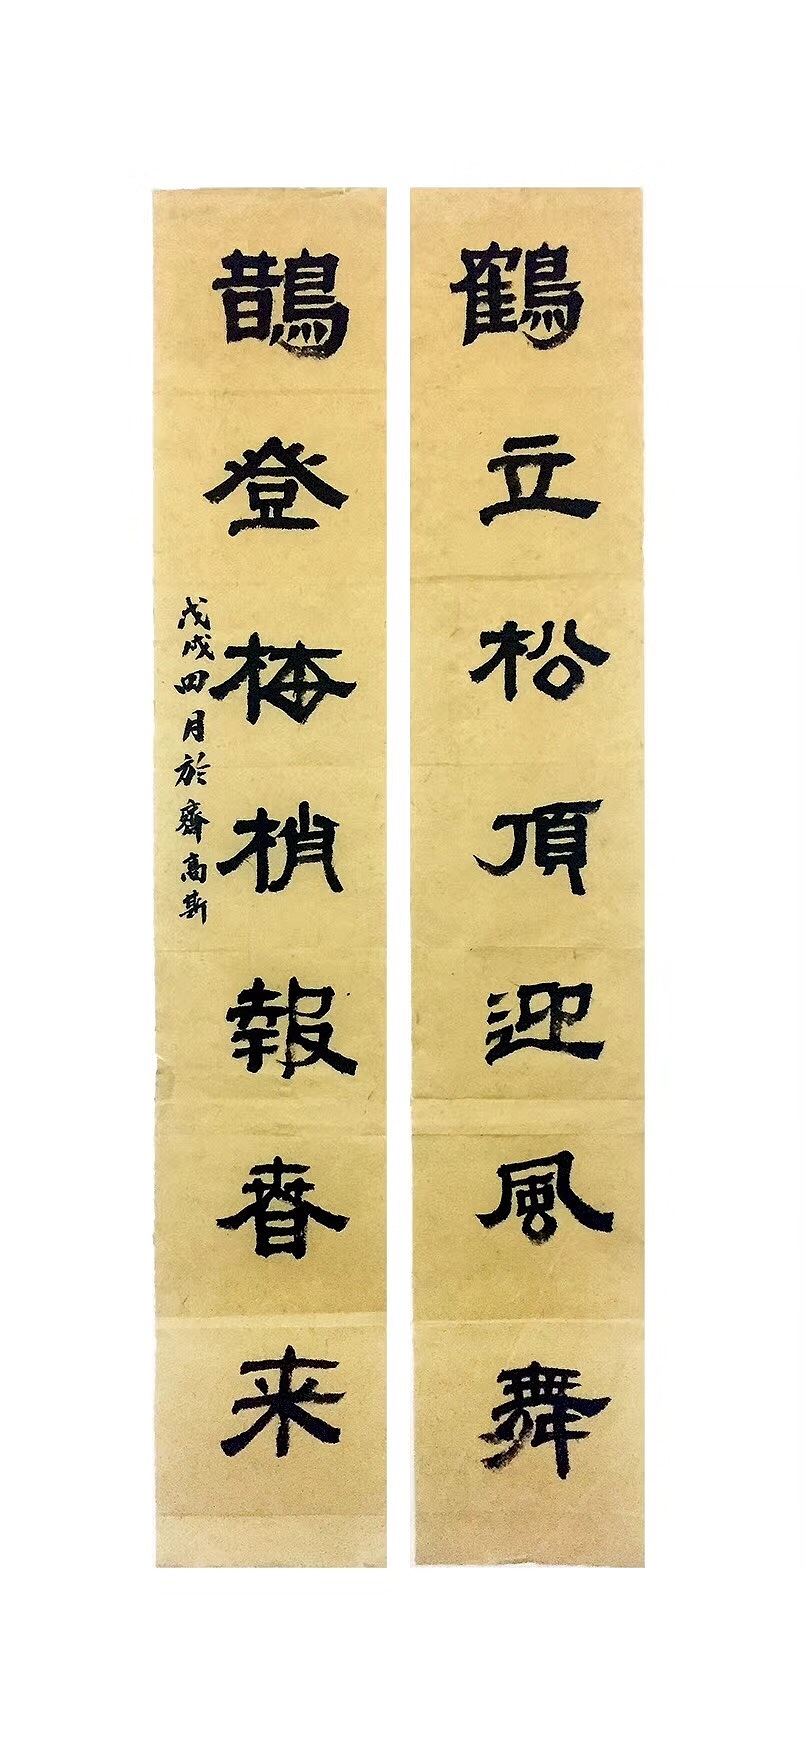 鶴立松頂迎風舞
鵲登梅梢報春来
戊戌四月於齊高斯